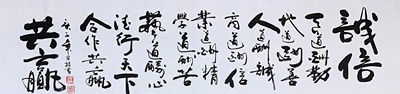 誠信
天道酬勤
地道酬善
人道酬誠
商道酬信
業道酬精
學道酬苦
藝道酬心
德行天下
合作共贏
共贏